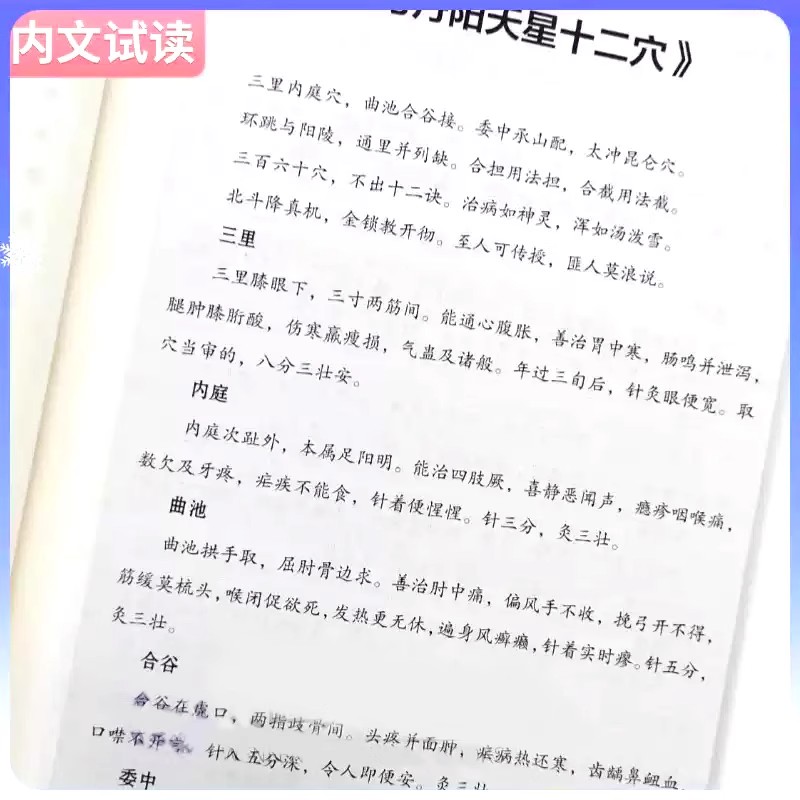 内文试读
丹阳天星十二穴》
三里内庭穴，曲池合谷接。委中承山配，太冲昆仑穴。
环跳与阳陵，通里并列缺。合担用法担，合截用法截。
三百六十穴，不出十二诀。治病如神灵，浑如汤泼雪。
北斗降真机，金锁教开彻。至人可传授，匪人莫浪说。
三里
三里膝眼下，三寸两筋间。能通心腹胀，善治胃中寒，肠鸣并泄泻，
腿肿膝胻酸，伤寒羸瘦损，气蛊及诸般。年过三旬后，针灸眼便宽。取
穴当审的，八分三壮安。
内庭
内庭次趾外，本属足阳明。能治四肢厥，喜静恶闻声，瘾疹咽喉痛，
数欠及牙疼，疟疾不能食，针着便惺惺。针三分，灸三壮。
曲池
曲池拱手取，屈肘骨边求。善治肘中痛，偏风手不收，挽弓开不得，
筋缓莫梳头，喉闭促欲死，发热更无休，遍身风癣癞，针着实时瘳。针五分，
灸三壮。
合谷
合谷在虎口，两指歧骨间。头疼并面肿，疟病热还寒，齿龋鼻衄血，
口噤不开言。针入五分深，令人即便安。灸三壮
委中